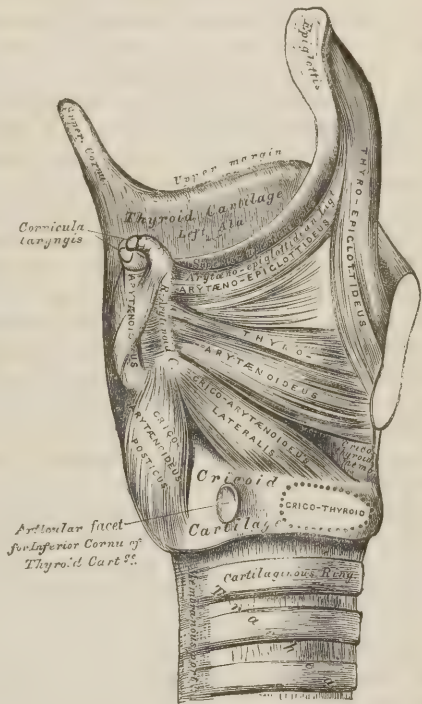 Epiglottis
Upper Cornu
Upper margin
Thyroid Cartilage
Left Ala
Cornicula
laryngis
Arytæno-epiglottidean Ligt
ARYTÆNO-EPIGLOTTIDEUS
THYRO-EPIGLOTTIDEUS
ARYTÆNOIDEUS
THYRO-
ARYTÆNOIDEUS
CRICO-ARYTÆNOIDEUS
LATERALIS
CRICO-
ARYTÆNOIDEUS
POSTICUS
Crico
thyroid
memb
Cricoid
Cartilage
CRICO-THYROID
Articular facet
for Inferior Cornu of
Thyroid Cartge.
Cartilaginous Rings
Membranous part
Trachea